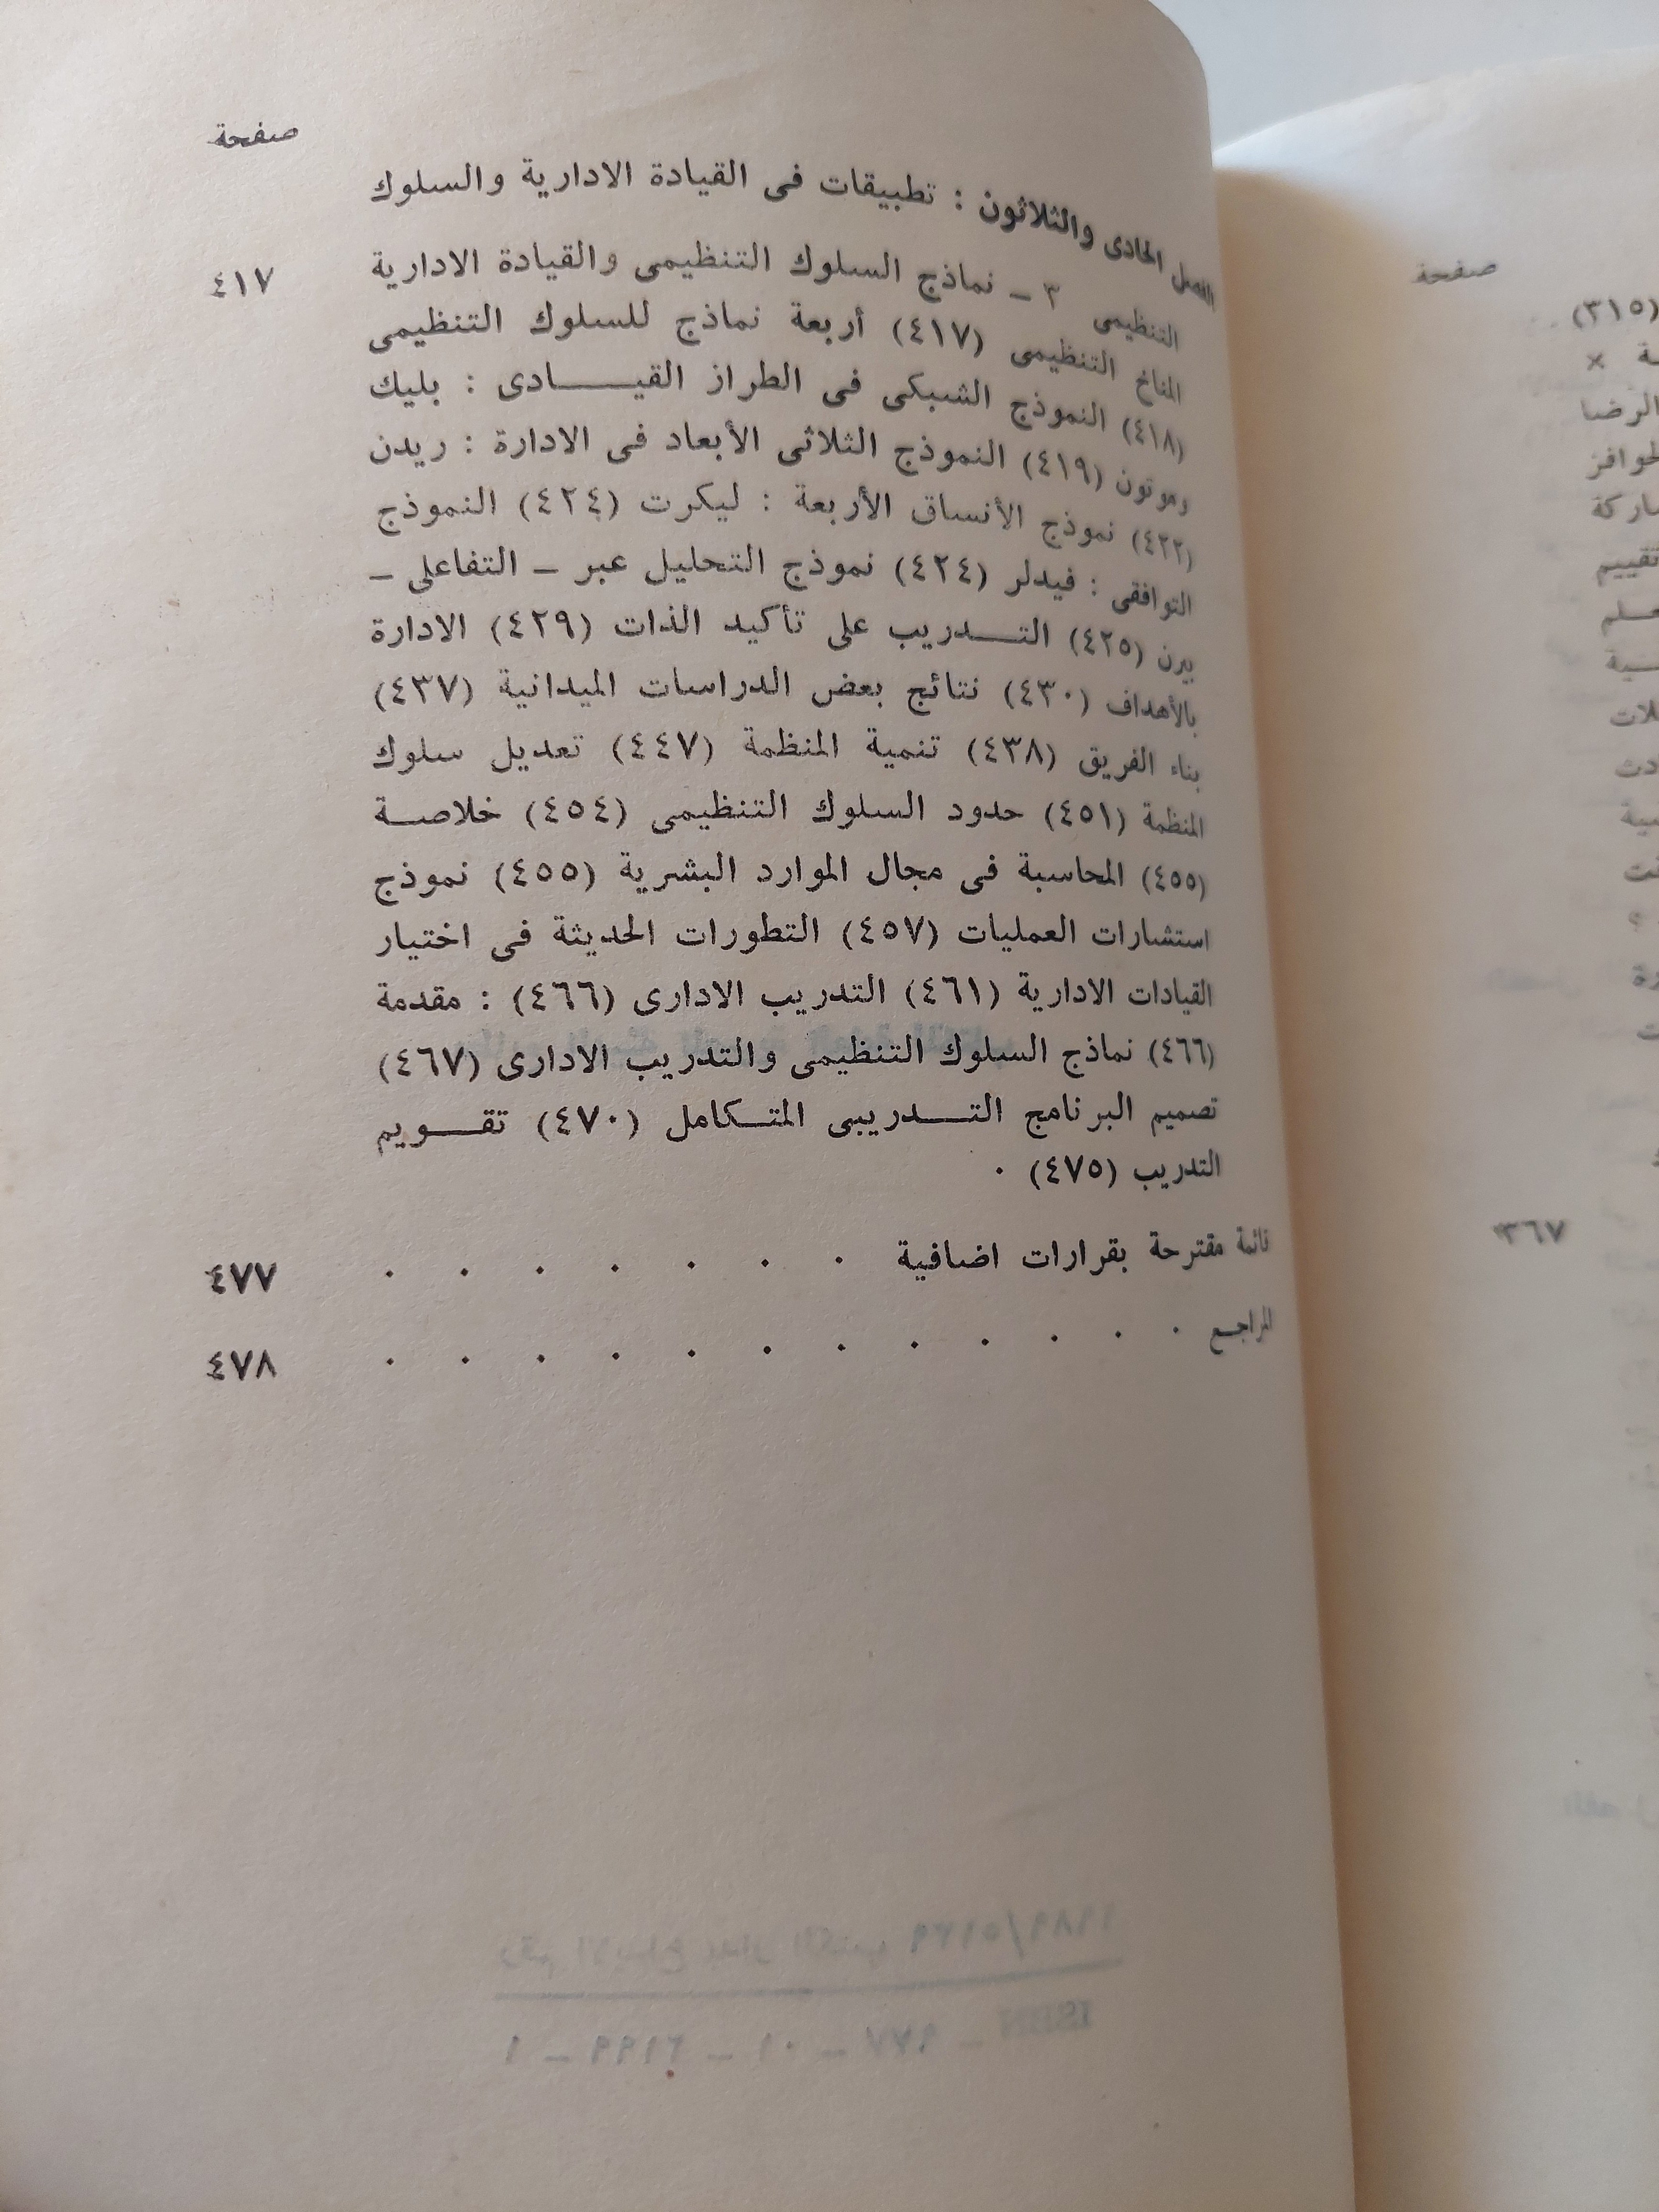 صفحة
الفصل الحادى والثلاثون : تطبيقات فى القيادة الادارية والسلوك
التنظيمى ٣ ــ نماذج السلوك التنظيمى والقيادة الادارية ٤١٧
المناخ التنظيمى (٤١٧) أربعة نماذج للسلوك التنظيمى
(٤١٨) النموذج الشبكى فى الطراز القيــــادى : بليك
وموتون (٤١٩) النموذج الثلاثى الأبعاد فى الادارة : ريدن
(٤٢٢) نموذج الأنساق الأربعة : ليكرت (٤٢٤) النموذج
التوافقى : فيدلر (٤٢٤) نموذج التحليل عبر ــ التفاعلى ــ
بيرن (٤٢٥) التـــدريب على تأكيد الذات (٤٢٩) الادارة
بالأهداف (٤٣٠) نتائج بعض الدراسات الميدانية (٤٣٧)
بناء الفريق (٤٣٨) تنمية المنظمة (٤٤٧) تعديل سلوك
المنظمة (٤٥١) حدود السلوك التنظيمى (٤٥٤) خلاصــة
(٤٥٥) المحاسبة فى مجال الموارد البشرية (٤٥٥) نموذج
استشارات العمليات (٤٥٧) التطورات الحديثة فى اختيار
القيادات الادارية (٤٦١) التدريب الادارى (٤٦٦) : مقدمة
(٤٦٦) نماذج السلوك التنظيمى والتدريب الادارى (٤٦٧)
تصميم البرنامج التـــدريبى المتــكامل (٤٧٠) تقـــويم
التدريب (٤٧٥) ٠
قائمة مقترحة بقرارات اضافية . . . . . . . ٤٧٧
المراجـع . . . . . . . . . . . ٤٧٨
صفحة
(٣١٥)
×
الرضا
تقييم
٣٦٧